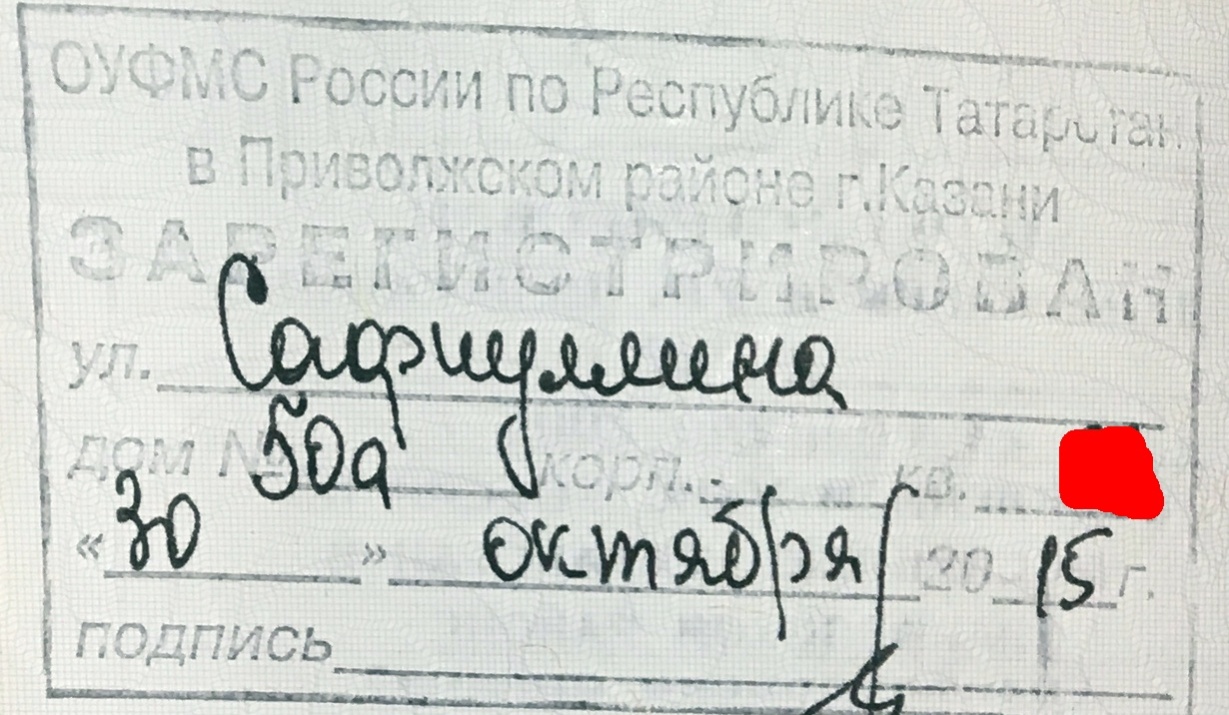 ОУФМС России по Республике Татарстан
в Приволжском районе г.Казани
ЗАРЕГИСТРИРОВАН
ул. Сафиуллина
дом № 50а корп. - кв.
«30» октября 2015 г.
подпись